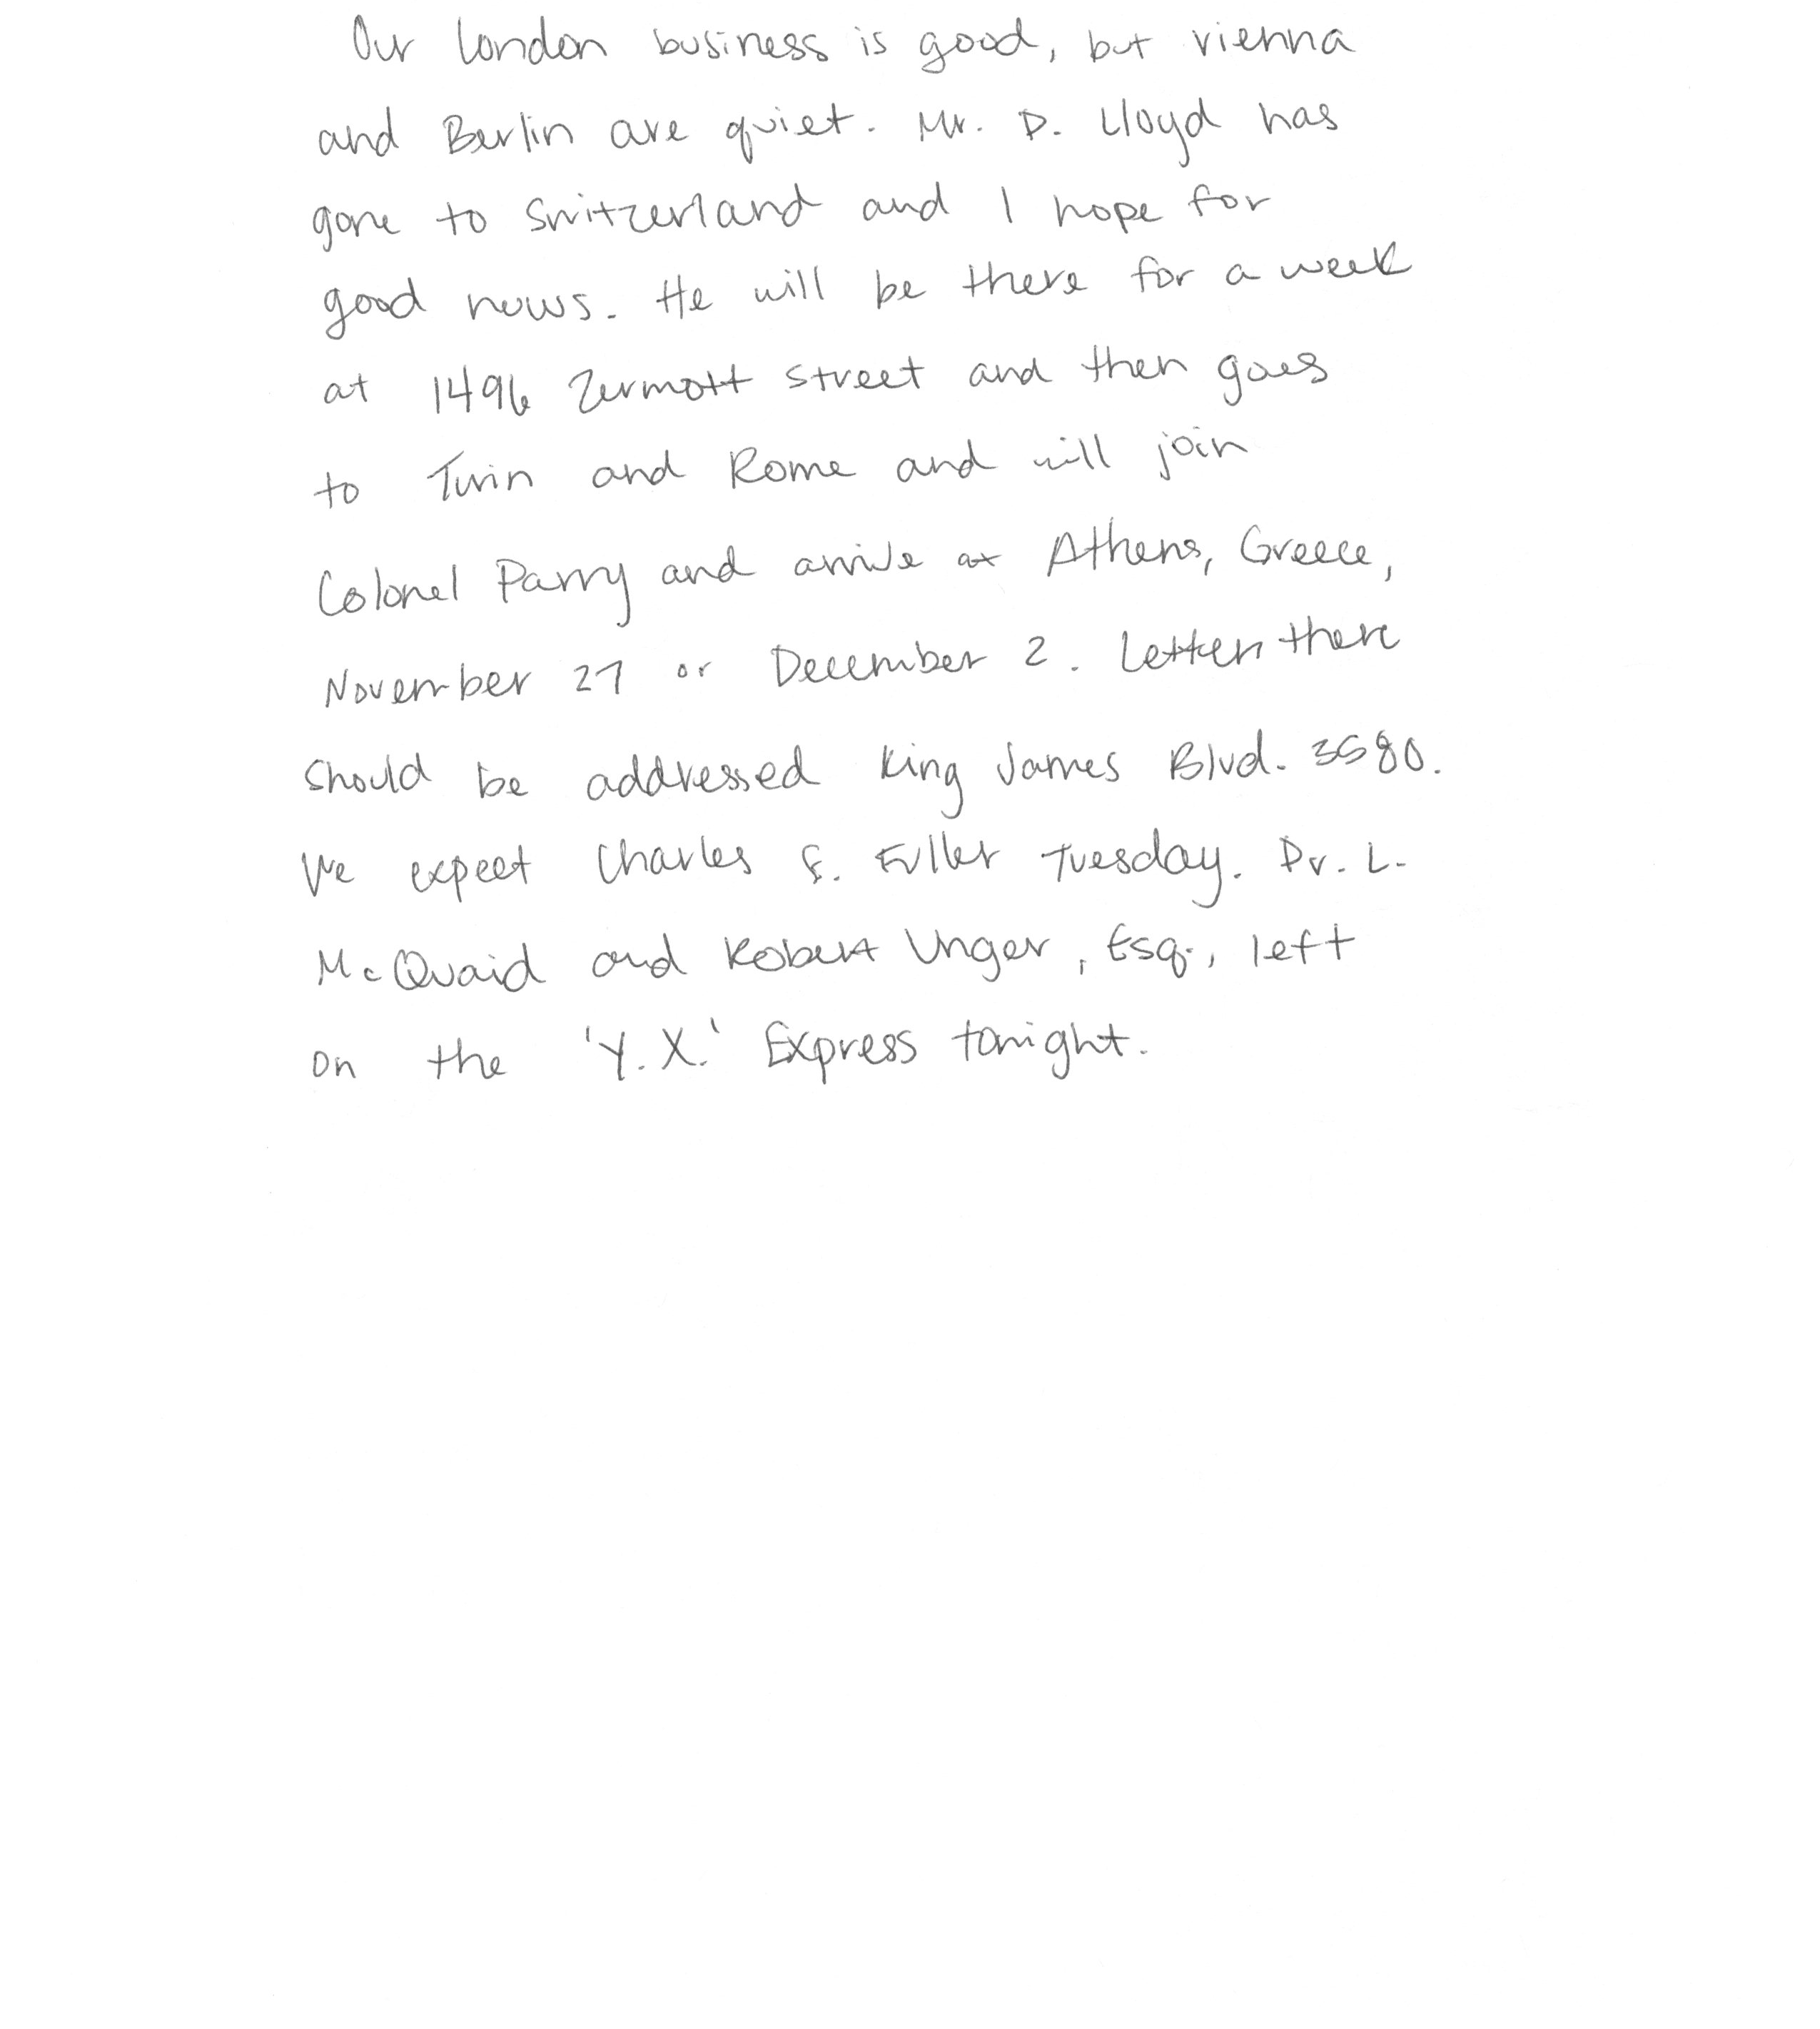 Our London business is good, but vienna
and Berlin are quiet. Mr. D. Lloyd has
gone to Switzerland and I hope for
good news. He will be there for a week
at 1496 Zermott street and then goes
to Turin and Rome and will join
Colonel Parry and arrive at Athens, Greece,
November 27 or December 2. Letters there
should be addressed King James Blvd. 3580.
We expect Charles E. Fuller Tuesday. Dr. L.
McQuaid and Robert Unger, Esq., left
on the 'Y.X.' Express tonight.